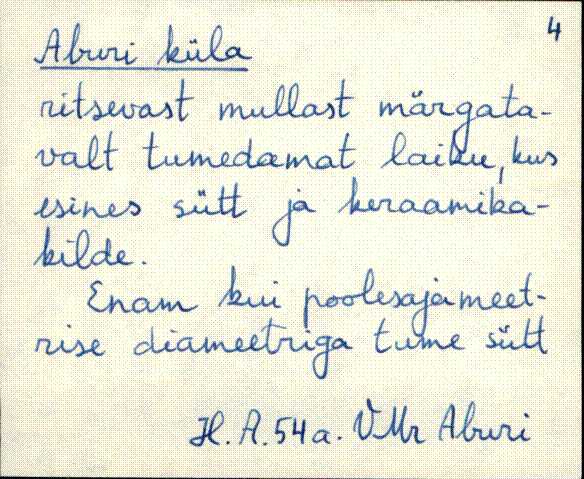 4
Aburi küla
ritsevast mullast märgata-
valt tumedamat laiku, kus
esines sütt ja keraamika-
kilde.
Enam kui poolesajameet-
rise diameetriga tume sütt
H. A. 54a. VMr Aburi